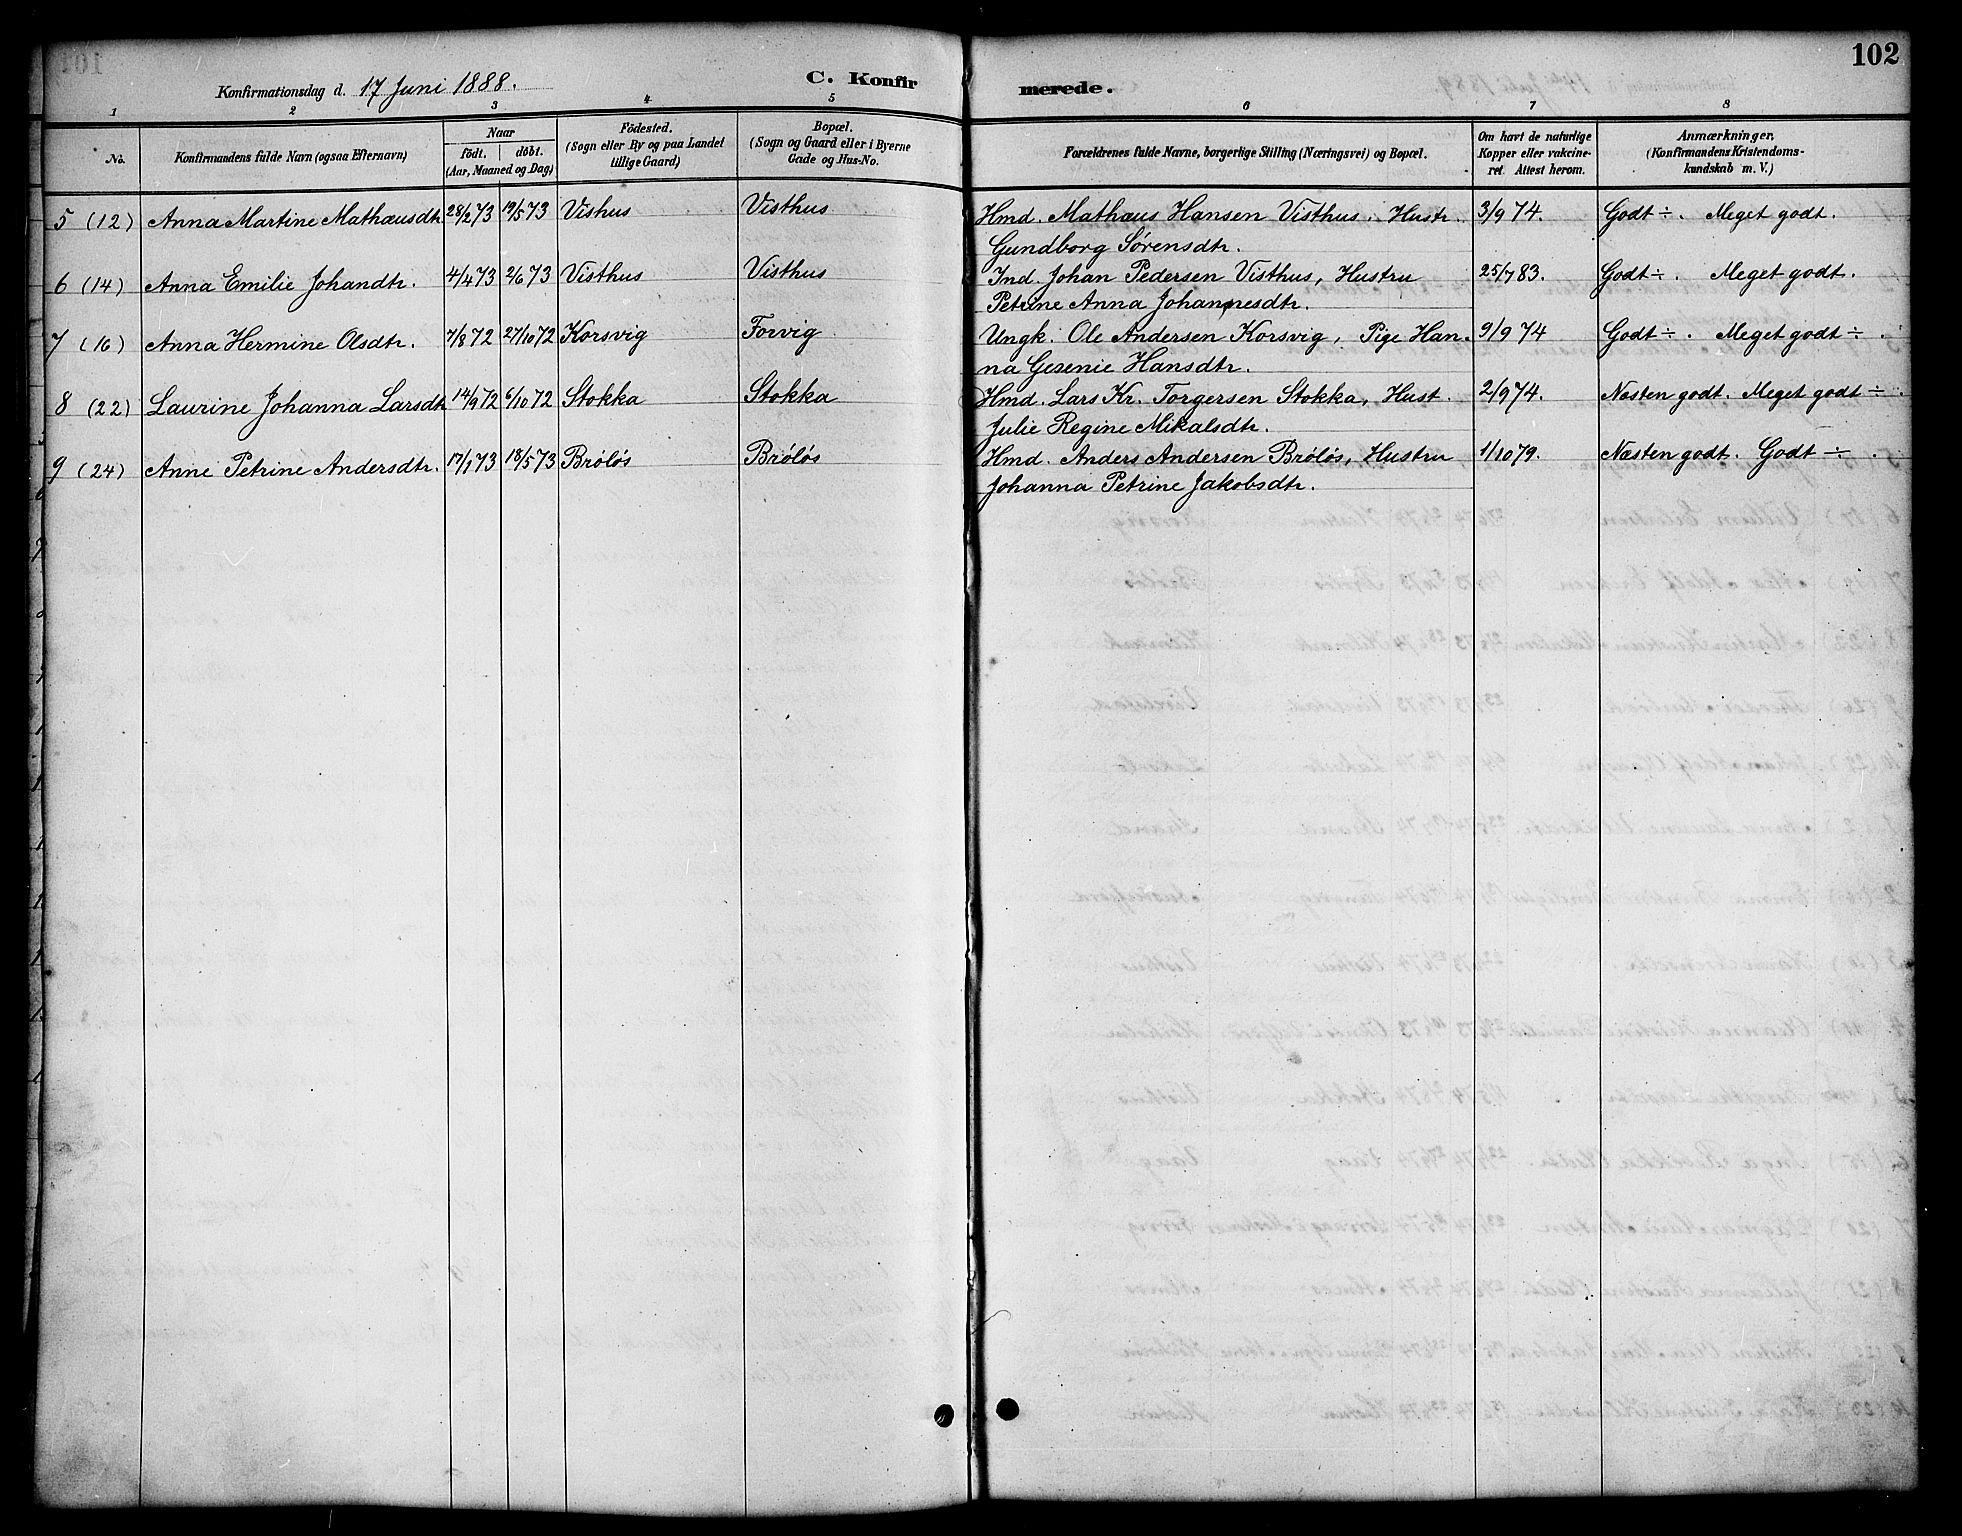 102
Konfirmationsdag d. 17 Juni 1888.
C. Konfir merede.
1 2 3 4 5 6 7 8
No.
Konfirmandens fulde Navn (ogsaa Efternavn)
Naar
födt. döbt.
(Aar, Maaned og Dag)
Födested.
(Sogn eller By og paa Landet
tillige Gaard)
Bopæl.
(Sogn og Gaard eller i Byerne
Gade og Hus-No.
Forældrenes fulde Navne, borgerlige Stilling (Næringsvei) og Bopæl.
Om havt de naturlige
Kopper eller vakcine-
ret. Attest herom.
Anmærkninger.
(Konfirmandens Kristendoms-
kundskab m. V.)
5 (12) Anna Martine Mathæusdtr 28/2 73 19/5 73 Vishus Visthus Hmd. Mathæus Hansen Visthus, Hustr. 3/9 74. Godt ÷. Meget godt.
Gundborg Sørensdtr.
6 (14) Anna Emilie Johandtr. 4/4 73 2/6 73 Visthus Visthus Ind. Johan Pedersen Visthus, Hustru 25/7 83. Godt ÷. Meget godt.
Petrine Anna Johannesdtr.
7 (16) Anna Hermine Olsdtr. 7/8 72 27/10 72 Korsvig Forvig Ungk. Ole Andersen Korsvig, Pige Han- 9/9 74 Godt ÷. Meget godt ÷.
na Gesenie Hansdtr.
8 (22) Laurine Johanna Larsdtr 14/9 72 6/10 72 Stokka Stokka Hmd. Lars Kr. Torgersen Stokka, Hust. 2/9 74. Næsten godt. Meget godt ÷.
Julie Regine Mikalsdtr.
9 (24) Anne Petrine Andersdtr. 17/1 73 18/5 73 Bröløs Bröløs Hmd. Anders Andersen Bröløs, Hustru 1/10 79. Næsten godt. Godt ÷.
Johanna Petrine Jakobsdtr.